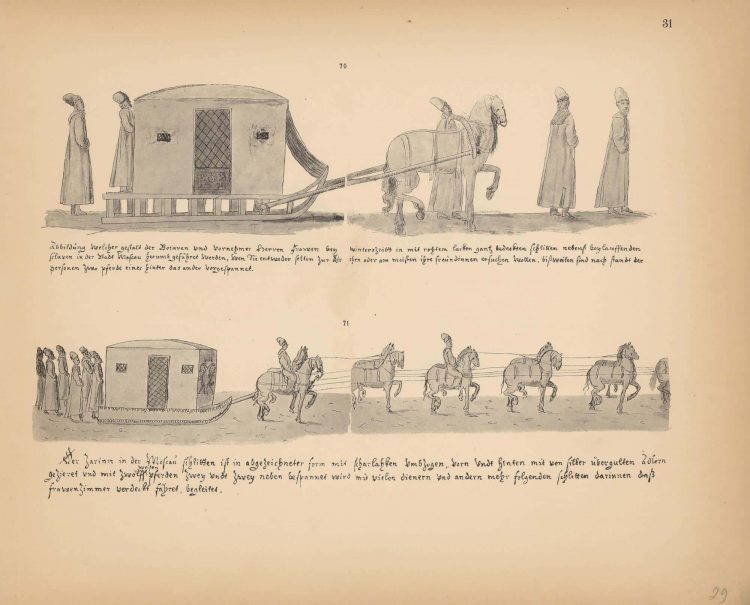 31
70
Abbildung welcher gestalt der Boiaren und Vornehmer Herren frawen bey winterszeitt in mit rohtem lacken gantz bedeckten schlitten nebenst beylaauffenden
sclaven in der Stadt Moscau herumb geführet werden, wen Sie entweder selten zur kirchen oder am meisten ihre freindinnen ersuchen wollen, bißweilen sind nach standt der
personen zwo pferde eines hinter das ander vorgespannet.
71
Der Zarinn in der Moscau schlitten ist in abgezeichneter form mit scharlahken umbzogen, vorn undt hinten mit von silber übergulten Adlern
gezieret und mit zwölff pferden zwey undt zwey neben bespannet wird mit vielen dienern und andern mehr folgenden schlitten darinnen daß
frawenzimmer verdeckt fähret, begleitet.
29